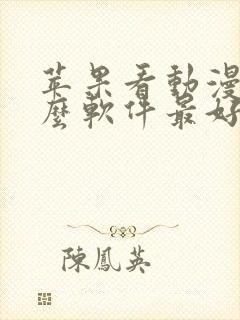 苹果看動漫
麼軟件最好
陳鳳英